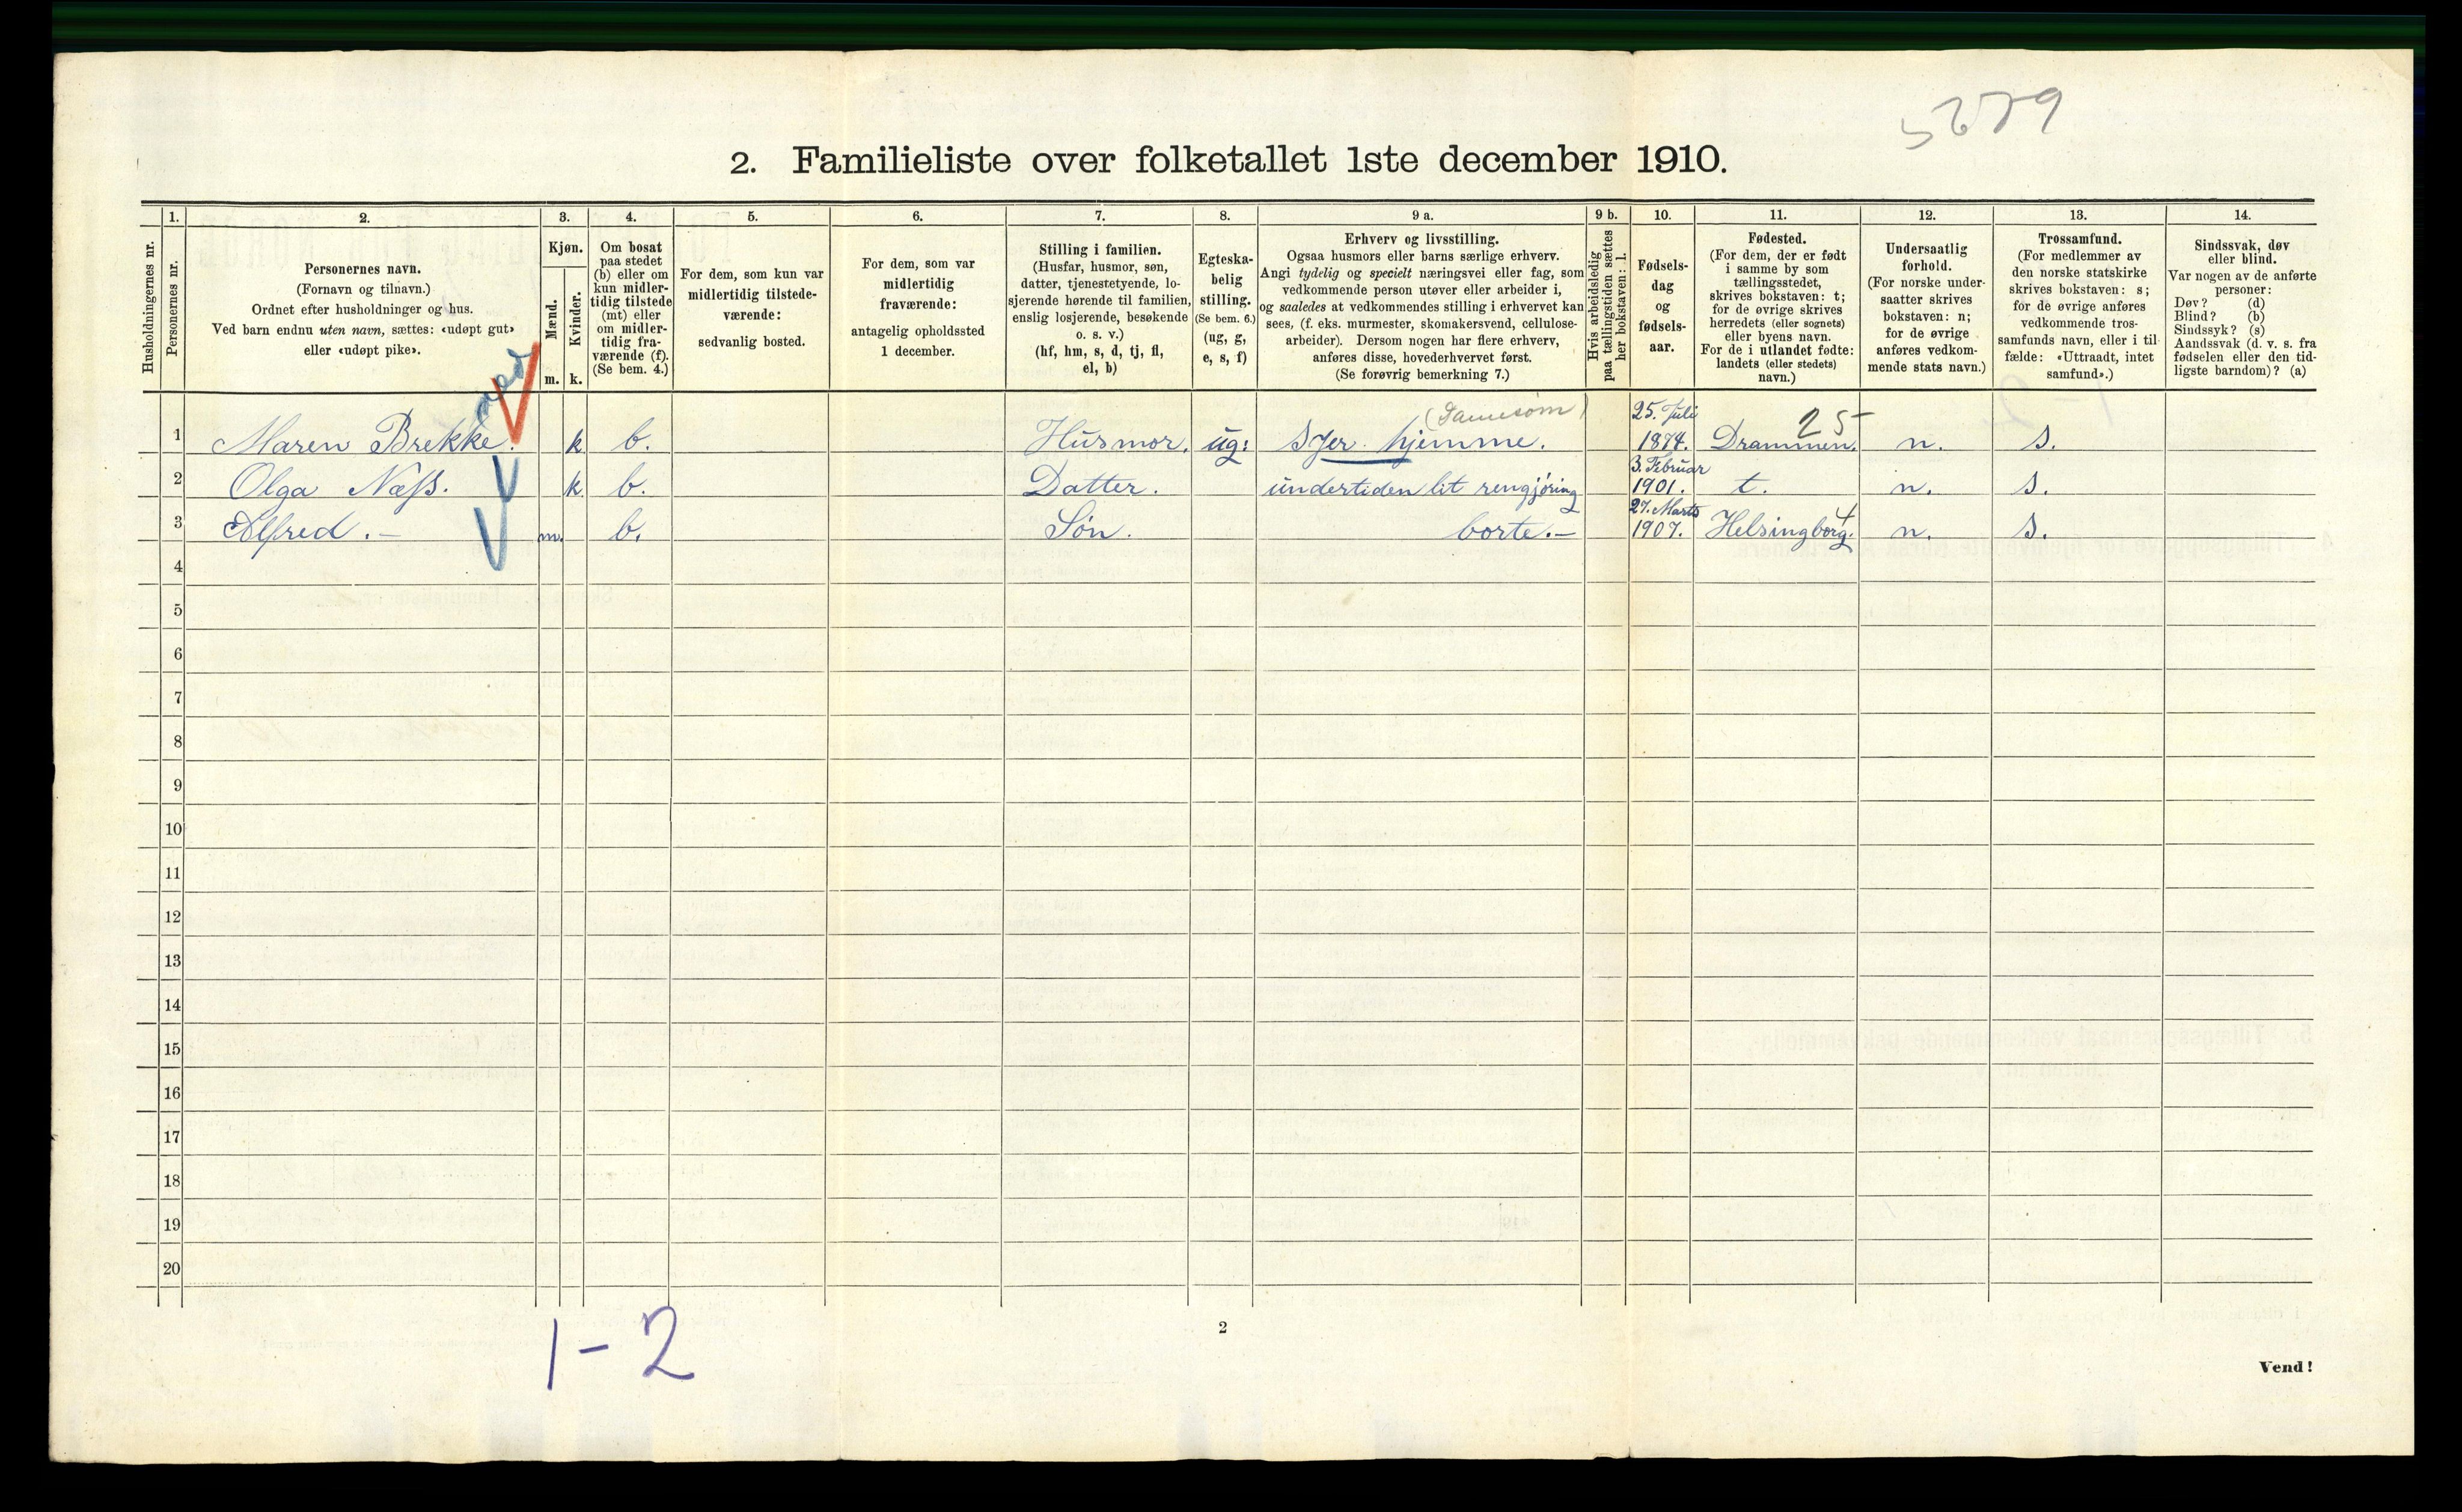 5279
2. Familieliste over folketallet 1ste december 1910.
Husholdningernes nr.
1.
Personernes nr.
2.
Personernes navn.
(Fornavn og tilnavn.)
Ordnet efter husholdninger og hus.
Ved barn endnu uten navn, sættes: «udøpt gut»
eller «udøpt pike».
3.
Kjøn.
Mænd.
m.
Kvinder.
k.
4.
Om bosat
paa stedet
(b) eller om
kun midler-
tidig tilstede
(mt) eller
om midler-
tidig fra-
værende (f).
(Se bem. 4.)
5.
For dem, som kun var
midlertidig tilstede-
værende:
sedvanlig bosted.
6.
For dem, som var
midlertidig
fraværende:
antagelig opholdssted
1 december.
7.
Stilling i familien.
(Husfar, husmor, søn,
datter, tjenestetyende, lo-
sjerende hørende til familien,
enslig losjerende, besøkende
o. s. v.)
(hf, hm, s, d, tj, fl,
el, b)
8.
Egteska-
belig
stilling.
(Se bem. 6.)
(ug, g,
e, s, f)
9 a.
Erhverv og livsstilling.
Ogsaa husmors eller barns særlige erhverv.
Angi tydelig og specielt næringsvei eller fag, som
vedkommende person utøver eller arbeider i,
og saaledes at vedkommendes stilling i erhvervet kan
sees, (f. eks. murmester, skomakersvend, cellulose-
arbeider). Dersom nogen har flere erhverv,
anføres disse, hovederhvervet først.
(Se forøvrig bemerkning 7.)
9 b.
Hvis arbeidsledig
paa tællingstiden sættes
her bokstaven: l.
10.
Fødsels-
dag
og
fødsels-
aar.
11.
Fødested.
(For dem, der er født
i samme by som
tællingsstedet,
skrives bokstaven: t;
for de øvrige skrives
herredets (eller sognets)
eller byens navn.
For de i utlandet fødte:
landets (eller stedets)
navn.)
12.
Undersaatlig
forhold.
(For norske under-
saatter skrives
bokstaven: n;
for de øvrige
anføres vedkom-
mende stats navn.)
13.
Trossamfund.
(For medlemmer av
den norske statskirke
skrives bokstaven: s;
for de øvrige anføres
vedkommende tros-
samfunds navn, eller i til-
fælde: «Uttraadt, intet
samfund».)
14.
Sindssvak, døv
eller blind.
Var nogen av de anførte
personer:
Døv? (d)
Blind? (b)
Sindssyk? (s)
Aandssvak (d. v. s. fra
fødselen eller den tid-
ligste barndom)? (a)
1 Maren Brekke. k b. Husmor. ug: syer hjemme. (Damesøm) 25. Juli 1874. Drammen. 25 n. s.
2 Olga Næss. k. b. Datter. undertiden lit rengjøring 3. Februar 1901. t. n. s.
3 Alfred. – m. b. Søn. borte. – 27. Marts 1907. Helsingborg. 4 n. s.
4
5
6
7
8
9
10
11
12
13
14
15
16
17
18
19
20
1 - 2
2
Vend!